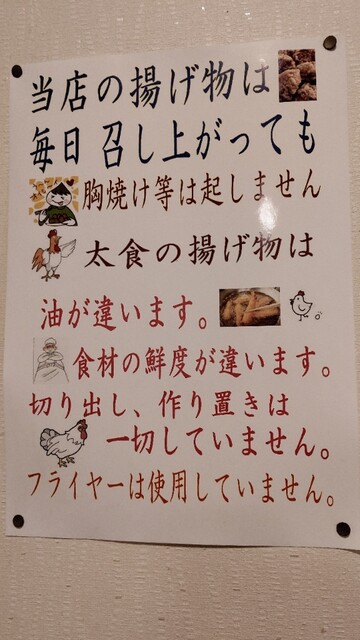 当店の揚げ物は
毎日 召し上がっても
胸焼け等は起しません
太食の揚げ物は
油が違います。
食材の鮮度が違います。
切り出し、作り置きは
一切していません。
フライヤーは使用していません。